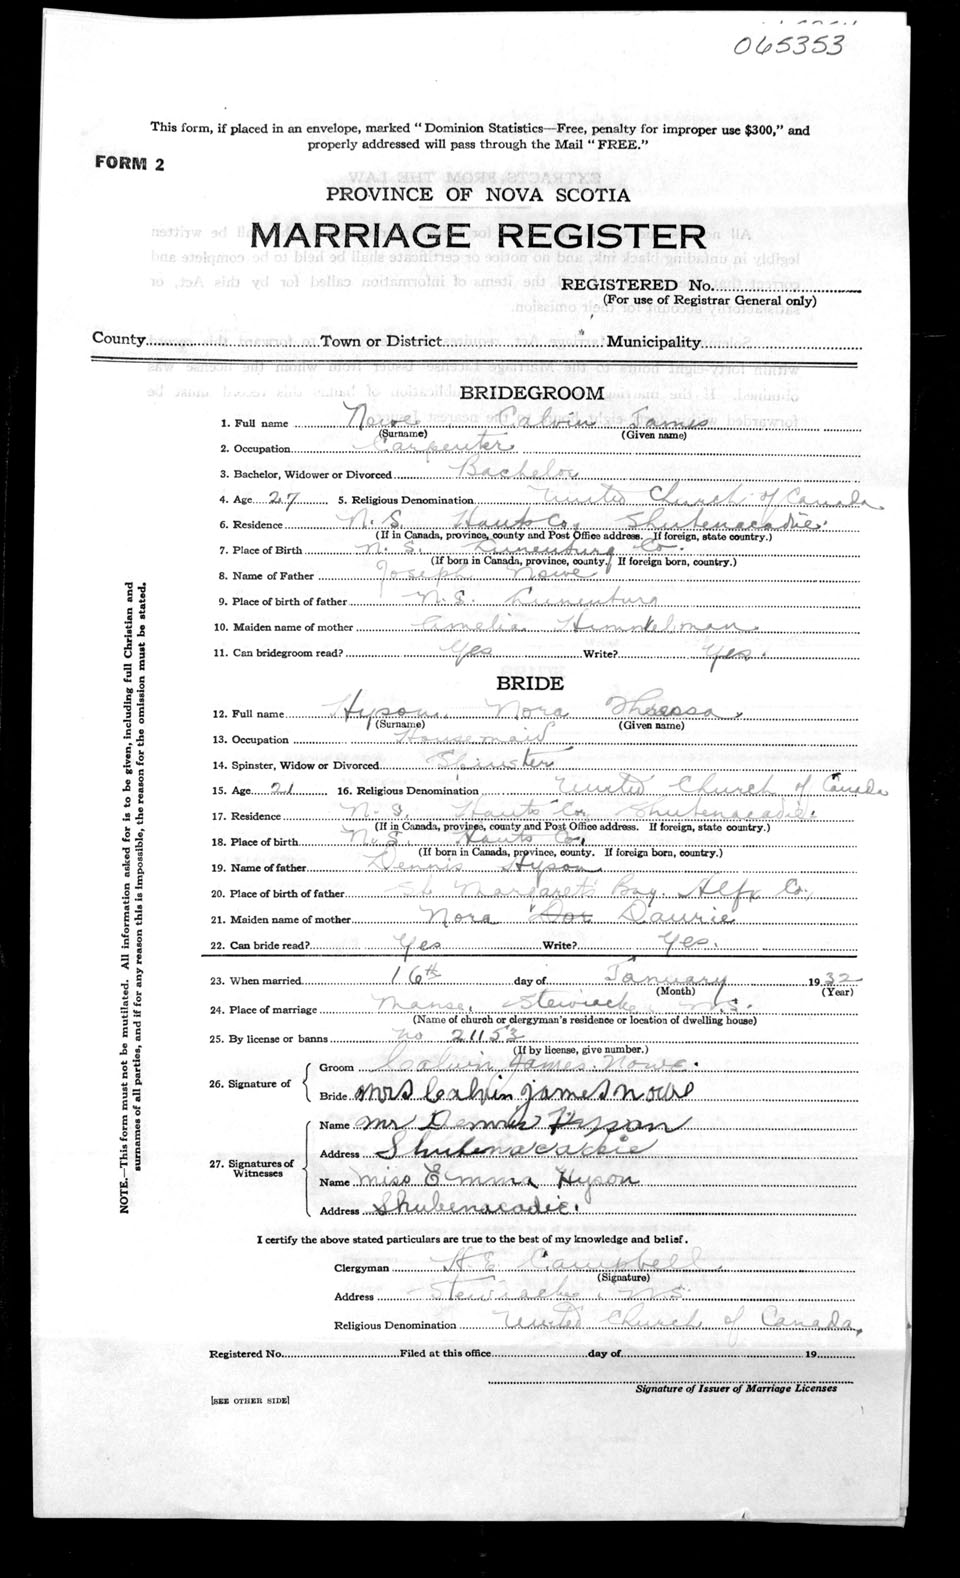 065353
This form, if placed in an envelope, marked "Dominion Statistics—Free, penalty for improper use $300," and
properly addressed will pass through the Mail "FREE."
FORM 2
PROVINCE OF NOVA SCOTIA
MARRIAGE REGISTER
REGISTERED No.
(For use of Registrar General only)
County Town or District Municipality
BRIDEGROOM
1. Full name Nowe Calvin James
(Surname) (Given name)
2. Occupation Carpenter
3. Bachelor, Widower or Divorced Bachelor
4. Age 27 5. Religious Denomination United Church of Canada
6. Residence N.S. Hants Co, Shubenacadie.
(If in Canada, province, county and Post Office address. If foreign, state country.)
7. Place of Birth N.S. Lunenburg Co.
(If born in Canada, province, county. If foreign born, country.)
8. Name of Father Joseph Nowe
9. Place of birth of father N.S. Lunenburg
10. Maiden name of mother Amelia Himmelman
11. Can bridegroom read? Yes Write? Yes.
BRIDE
12. Full name Hyson Nora Theressa
(Surname) (Given name)
13. Occupation Housemaid
14. Spinster, Widow or Divorced Spinster
15. Age 21 16. Religious Denomination United Church of Canada
17. Residence N.S. Hants Co, Shubenacadie.
(If in Canada, province, county and Post Office address. If foreign, state country.)
18. Place of birth N.S. Hants Co.
(If born in Canada, province, county. If foreign born, country.)
19. Name of father Dennis Hyson
20. Place of birth of father St Margarets Bay. Hlfx Co,
21. Maiden name of mother Nora Daurie
22. Can bride read? Yes Write? Yes.
23. When married 16th day of January 1932
(Month) (Year)
24. Place of marriage Manse, Stewiacke, N.S.
(Name of church or clergyman's residence or location of dwelling house)
25. By license or banns No 21153
(If by license, give number.)
26. Signature of
Groom Calvin James Nowe.
Bride Mrs Calvin James Nowe
27. Signatures of Witnesses
Name Mr Dennis Hyson
Address Shubenacadie
Name Miss Emma Hyson
Address Shubenacadie.
I certify the above stated particulars are true to the best of my knowledge and belief.
Clergyman H.E. Campbell
(Signature)
Address Stewiacke, N.S.
Religious Denomination United Church of Canada,
Registered No. Filed at this office day of 19
Signature of Issuer of Marriage Licenses
[SEE OTHER SIDE]
NOTE.—This form must not be mutilated. All information asked for is to be given, including full Christian and
surnames of all parties, and if for any reason this is impossible, the reason for the omission must be stated.